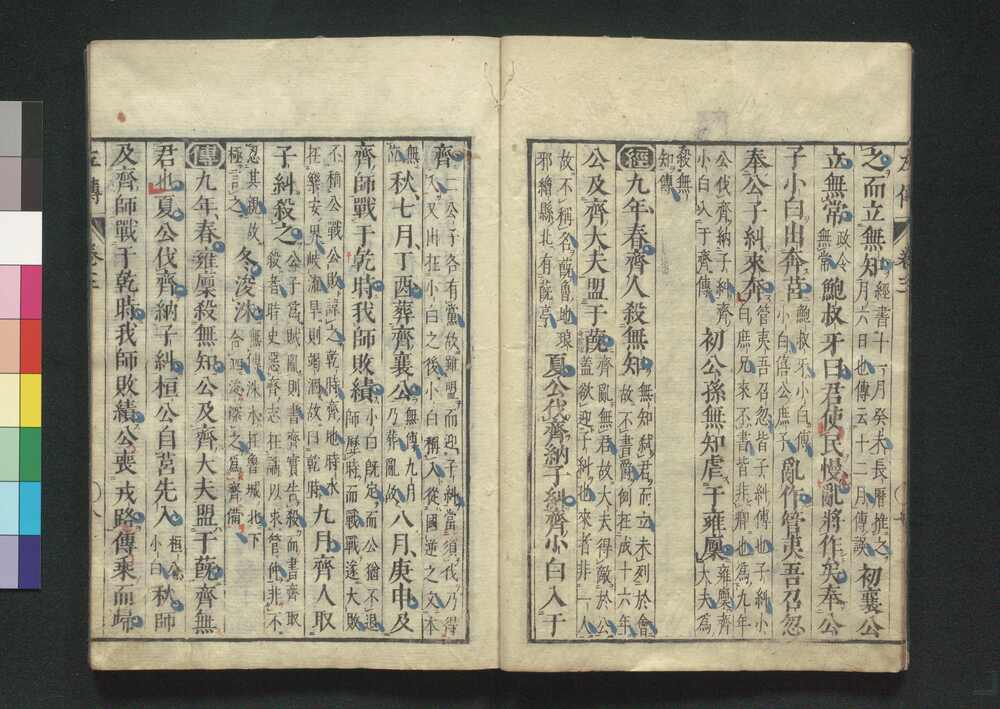 之而立無知經書十一月癸未長厤推之月六日也傳云十二月傳誤初襄公
立無常政令無常鮑叔牙曰君使民慢亂將作矣奉公
子小白出奔莒鮑叔牙小白傅小白僖公庶子亂作管夷吾召忽
奉公子糾來奔管夷吾召忽皆子糾傅也子糾小白庶兄來不書皆非卿也為九年
公伐齊納子糾齊小白以入于齊傳初公孫無知虐于雍廩雍廩齊大夫為
殺無知傳
經九年春齊人殺無知無知弒君而立未列於會故不書爵例在成十六年
公及齊大夫盟于蔇齊亂無君故大夫得敵於公蓋欲迎子糾也來者非一人
故不稱名蔇魯地琅邪繒縣北有蔇亭夏公伐齊納子糾齊小白入于
齊二公子各有黨故雖盟而迎子糾當須伐乃得入又出在小白之後小白稱入從國逆之文本
無位秋七月丁酉葬齊襄公無傳九月乃葬亂故八月庚申及
齊師戰于乾時我師敗績小白既定而公猶不退師歷時而戰戰遂大敗
不稱公戰公敗諱之乾時齊地時水在樂安界岐流旱則竭涸故曰乾時九月齊人取
子糾殺之公子為賊亂則書齊實告殺而書齊取殺者時史惡齊志在譎以求管仲非不
忍其親故極言之冬浚洙無傳洙水在魯城北下合泗浚深之為齊備
傳九年春雍廩殺無知公及齊大夫盟于蔇齊無
君也夏公伐齊納子糾桓公自莒先入桓公小白秋師
及齊師戰于乾時我師敗績公喪戎路傳乘而歸
左傳 卷三